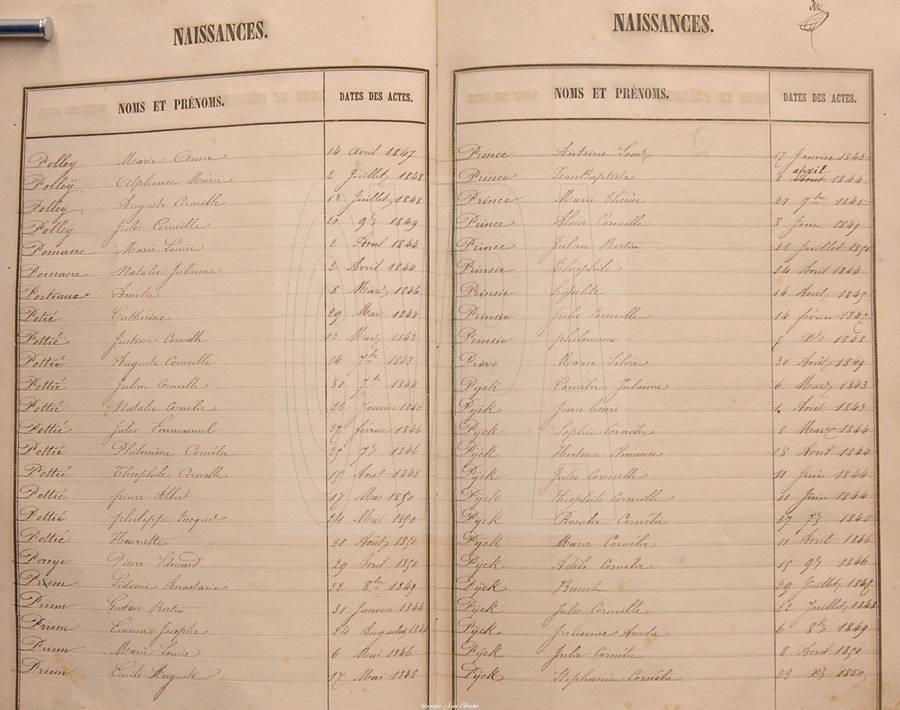 NAISSANCES.
NOMS ET PRÉNOMS. DATES DES ACTES.
Polley Marie Anne 14 Avril 1847
Polleÿ Alphonse Marie 2 Juillet 1848
Polleÿ Auguste Corneille 18 Juillet 1848
Polley Jules Corneille 20 9bre 1849
Pomaere Marie Louise 2 Avril 1844
Pomaere Natalie Julienne 2 Avril 1844
Porteaux Amelie 8 Mars 1846
Potié Catherine 29 Mai 1844
Pottié Justine Cornelle 13 Mars 1843
Pottié Auguste Corneille 14 7bre 1843
Pottié Julien Corneille 30 7bre 1844
Pottié Natalie Cornélie 23 Janvier 1846
Pottié Jules Emmanuel 27 février 1846
Pottié Philomène Cornélie 25 7bre 1846
Pottié Théophile Corneille 15 Aout 1848
Pottié pierre Albert 17 Mai 1850
Pottié philippe Jacques 24 Mai 1850
Pottié Henriette 20 Août 1850
Pierre Edmond 29 Aout 1850
Priem Sidonie Anastasie 22 8bre 1849
Priem Gustave Bertin 31 Janvier 1844
Priem Emma Josephe 24
Priem Marie Louise 6 Mai 1846
Priem Emile Auguste 17 Mai 1848
NAISSANCES.
NOMS ET PRÉNOMS. DATES DES ACTES.
Prince Antoine Louis 17 Janvier 1843
avril
Prince Jean Baptiste 8 Aout 1844
Prince Marie Thérèse 21 7bre 1845
Prince Aloïse Corneille 8 Juin 1849
Prince Julien Bertin 28 Juillet 1850
Prinsie Théophile 24 Avril 1844
Prinsie hypolite 14 Août 1845
Prinsie Jules Corneille 14 février 1847
Prinsie philomène 7 Xbre 1848
Provo Marie Silvie 30 Août 1849
Pÿck Cornélie Julienne 6 Mars 1843
Pÿck Jean henri 1 Aout 1843
Pÿck Sophie Cornélie 2 Mars 1844
Pÿck Hortense Clemence 18 Avril 1844
Pÿck Jules Corneille 11 Juin 1844
Pÿck Théophile Corneille 11 Juin 1844
Pÿck Rosalie Cornélie 27 7bre 1845
Pÿck Marie Cornélie 11 Avril 1846
Pÿck Adèle Cornelie 15 9bre 1846
Pÿck Benoit 29 Juillet 1848
Pÿck Jules Corneille 22 Juillet 1848
Pÿck Julienne Amelie 6 8bre 1849
Pÿck Julie Cornélie 8 Avril 1850
Pÿck Stephanie Cornélie 23 Xbre 1850